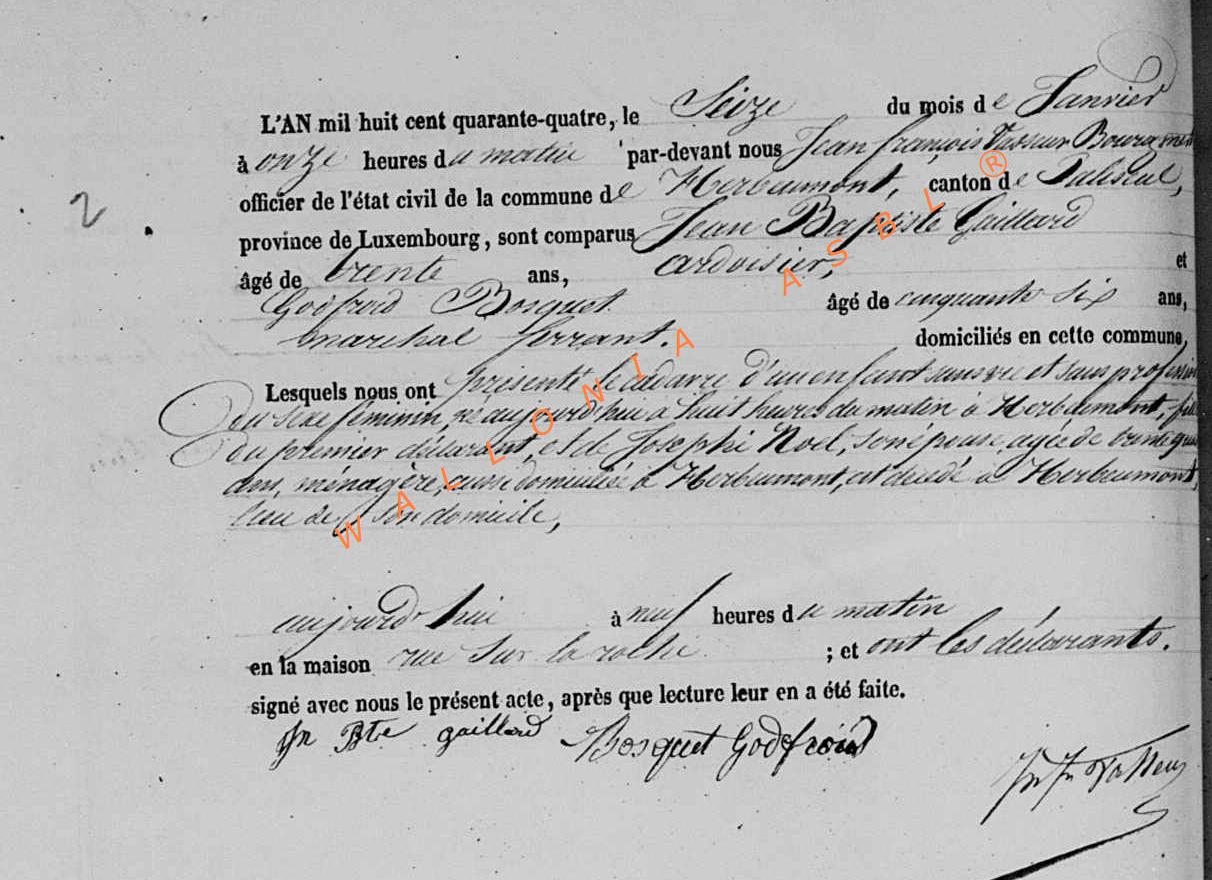 L'AN mil huit cent quarante-quatre, le Seize du mois de Janvier
à onze heures du matin par-devant nous Jean françois Vasseur Bourgmes
officier de l'état civil de la commune de Herbeumont, canton de Paliseul,
province de Luxembourg, sont comparus Jean Baptiste Gaillard
âgé de trente ans, ardoisier, et
Godfroid Bosquet âgé de cinquante six ans,
marechal ferrant. domiciliés en cette commune,
2
Lesquels nous ont présenté le cadavre d'un enfant sans vie et sans profession
Du sexe féminin, né aujourd'hui à huit heures du matin à Herbeumont, fille
du premier déclarant, et de Josephe Noel, son épouse, agée de trente
ans, ménagère, aussi domiciliée à Herbeumont, est décédé à Herbeumont,
lieu de son domicile,
aujourd'hui à neuf heures du matin
en la maison rue Sur la roche ; et ont les déclarants.
signé avec nous le présent acte, après que lecture leur en a été faite.
Jn Bte gaillard Bosquet Godfroid
Jn Fs Vasseur
WALLONIA ASBL ®